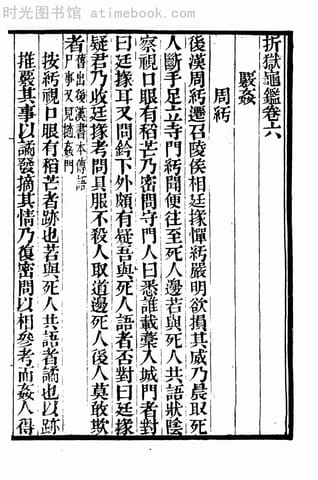 时光图书馆 - atimebook.com
折獄龜鑑卷六
覈姦
周紆
後漢周紆遷召陵侯相廷掾憚紆嚴明欲損其威乃晨取死
人斷手足立寺門紆聞便往至死人邊若與死人共語狀陰
察視口眼有稻芒乃密問守門人曰悉誰載藁入城門者對
曰廷掾耳又問鈴下外頗有疑吾與死人語者否對曰廷掾
疑君乃收廷掾考問具服不殺人取道邊死人後人莫敢欺
者
舊出後漢書本傳語
尸事又見聽姦門
按紆視口眼有稻芒者跡也若與死人共語者譎也以跡
推覈其事以譎發摘其情乃復密問以相參考而姦人得